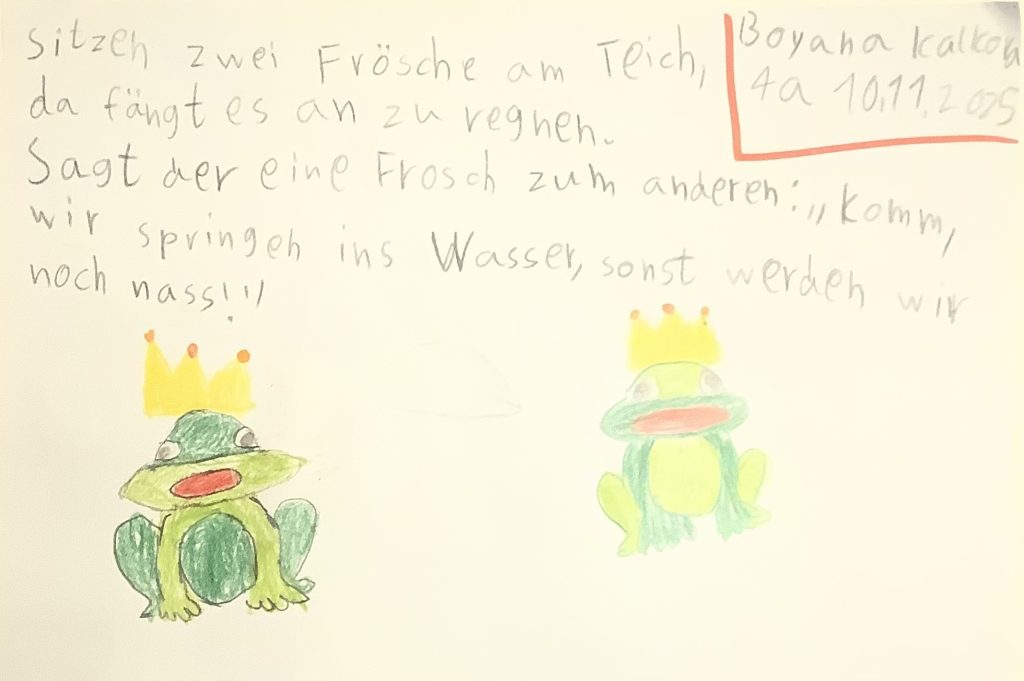 Sitzen zwei Frösche am Teich,
da fängt es an zu regnen.
Sagt der eine Frosch zum anderen: „Komm,
wir springen ins Wasser, sonst werden wir
noch nass!"
Boyana Kalkova
4a 10.11.2025